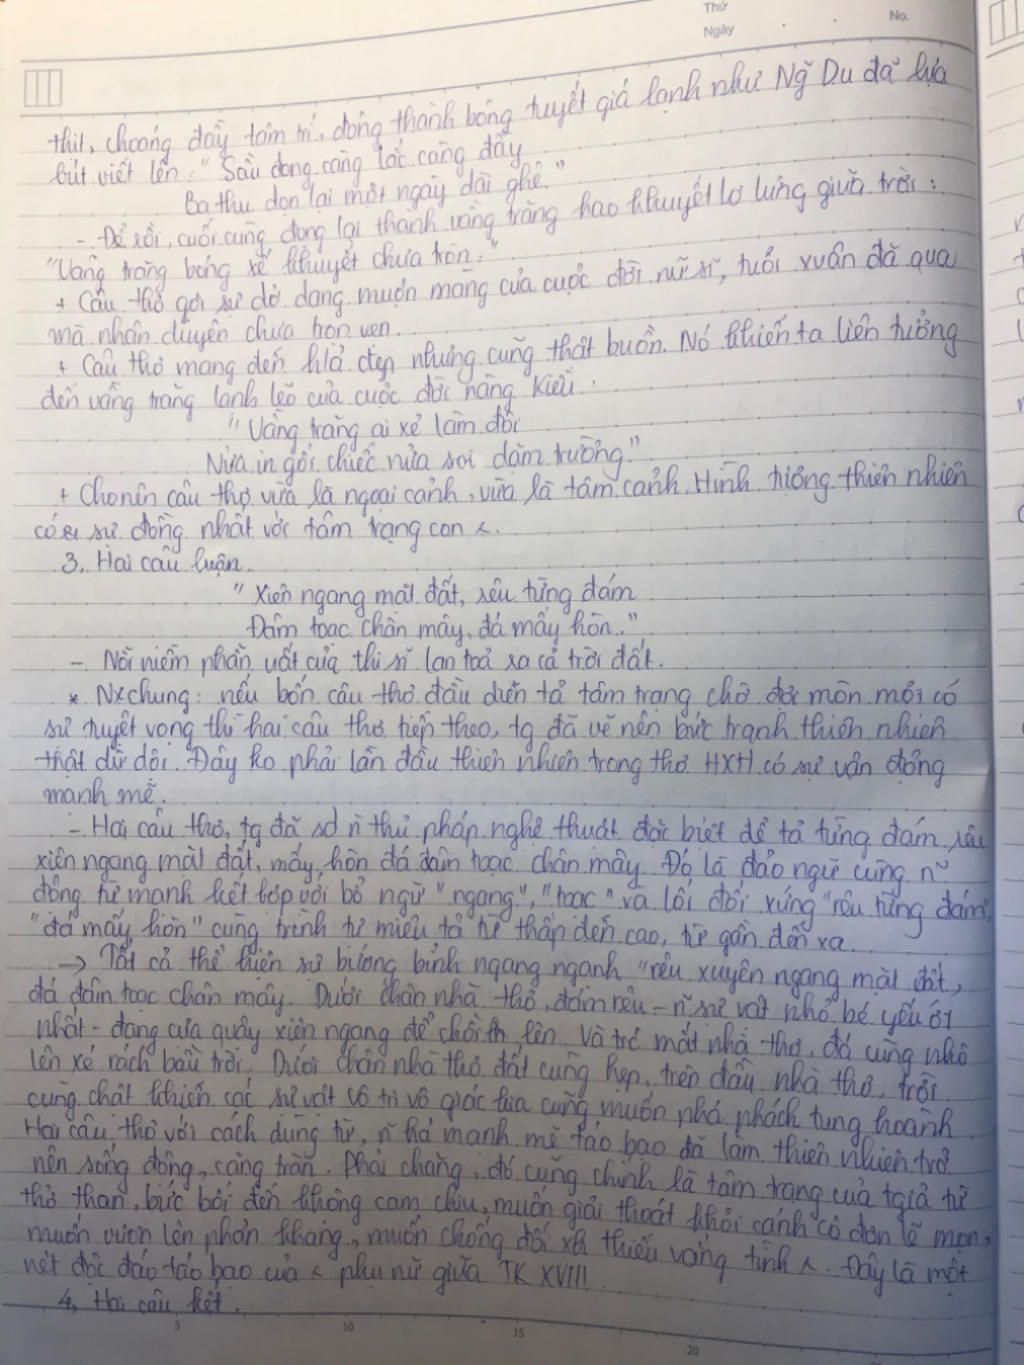 Thứ
Ngày
No.
thit, choáng đầy tâm trí, đóng thành bông tuyết giá lạnh như Ng~ Du đã
bút viết lên: "Sầu đong càng lắc càng đầy
Ba thu dọn lại một ngày dài ghê."
- Để rồi, cuối cùng đọng lại thành vầng trăng hao khuyết lơ lửng giữa trời:
"Vầng trăng bóng xế khuyết chưa tròn."
+ Câu thơ gợi sự dở dang muộn màng của cuộc đời nữ sĩ, tuổi xuân đã qua
mà nhân duyên chưa trọn vẹn.
+ Câu thơ mang đến h/ả đẹp nhưng cũng thật buồn. Nó khiến ta liên tưởng
đến vầng trăng lạnh lẽo của cuộc đời nàng Kiều:
"Vầng trăng ai xẻ làm đôi
Nửa in gối chiếc nửa soi dặm trường"
+ Cho nên câu thơ vừa là ngoại cảnh, vừa là tâm cảnh. Hình tượng thiên nhiên
có sự đồng nhất với tâm trạng con
3, Hai câu luận.
"Xiên ngang mặt đất, rêu từng đám
Đâm toạc chân mây, đá mấy hòn."
- Nỗi niềm phẫn uất của thi sĩ lan toả ra cả trời đất.
* Nx chung: nếu bốn câu thơ đầu diễn tả tâm trạng chờ đợi mòn mỏi có
sự tuyệt vọng thì hai câu thơ tiếp theo, tg đã vẽ nên bức tranh thiên nhiên
thật dữ dội. Đây ko phải lần đầu thiên nhiên trong thơ HXH có sự vận động
mạnh mẽ.
- Hai câu thơ, tg đã sd n~ thủ pháp nghệ thuật đặc biệt để tả từng đám rêu
xiên ngang mặt đất, mấy hòn đá đâm toạc chân mây. Đó là đảo ngữ cùng n~
động từ mạnh kết hợp với bổ ngữ "ngang", "toạc" và lối đối xứng "rêu từng đám",
"đá mấy hòn" cùng trình tự miêu tả từ thấp đến cao, từ gần đến xa.
-> Tất cả thể hiện sự bướng bỉnh ngang ngạnh "rêu xuyên ngang mặt đất,
đá đâm toạc chân mây. Dưới chân nhà thơ, đám rêu - n~ sự vật nhỏ bé yếu ớt
nhất - đang cựa quậy xiên ngang để chồi lên. Và trc mắt nhà thơ, đá cũng nhô
lên xé rách bầu trời. Dưới chân nhà thơ đất cũng hẹp, trên đầu nhà thơ, trời
cũng chật khiến các sự vật vô tri vô giác kia cũng muốn phá phách tung hoành.
Hai câu thơ với cách dùng từ, n~ h/ả mạnh mẽ táo bạo đã làm thiên nhiên trở
nên sống động, căng tràn. Phải chăng, đó cũng chính là tâm trạng của tgiả từ
thở than, bực bội đến không cam chịu, muốn giải thoát khỏi cảnh cô đơn lẽ mọn,
muốn vươn lên phản kháng, muốn chống đối xh thiếu vắng tình Đây là một
nét độc đáo táo bạo của phụ nữ giữa TK XVIII.
4, Hai câu kết.
5
10
15
20